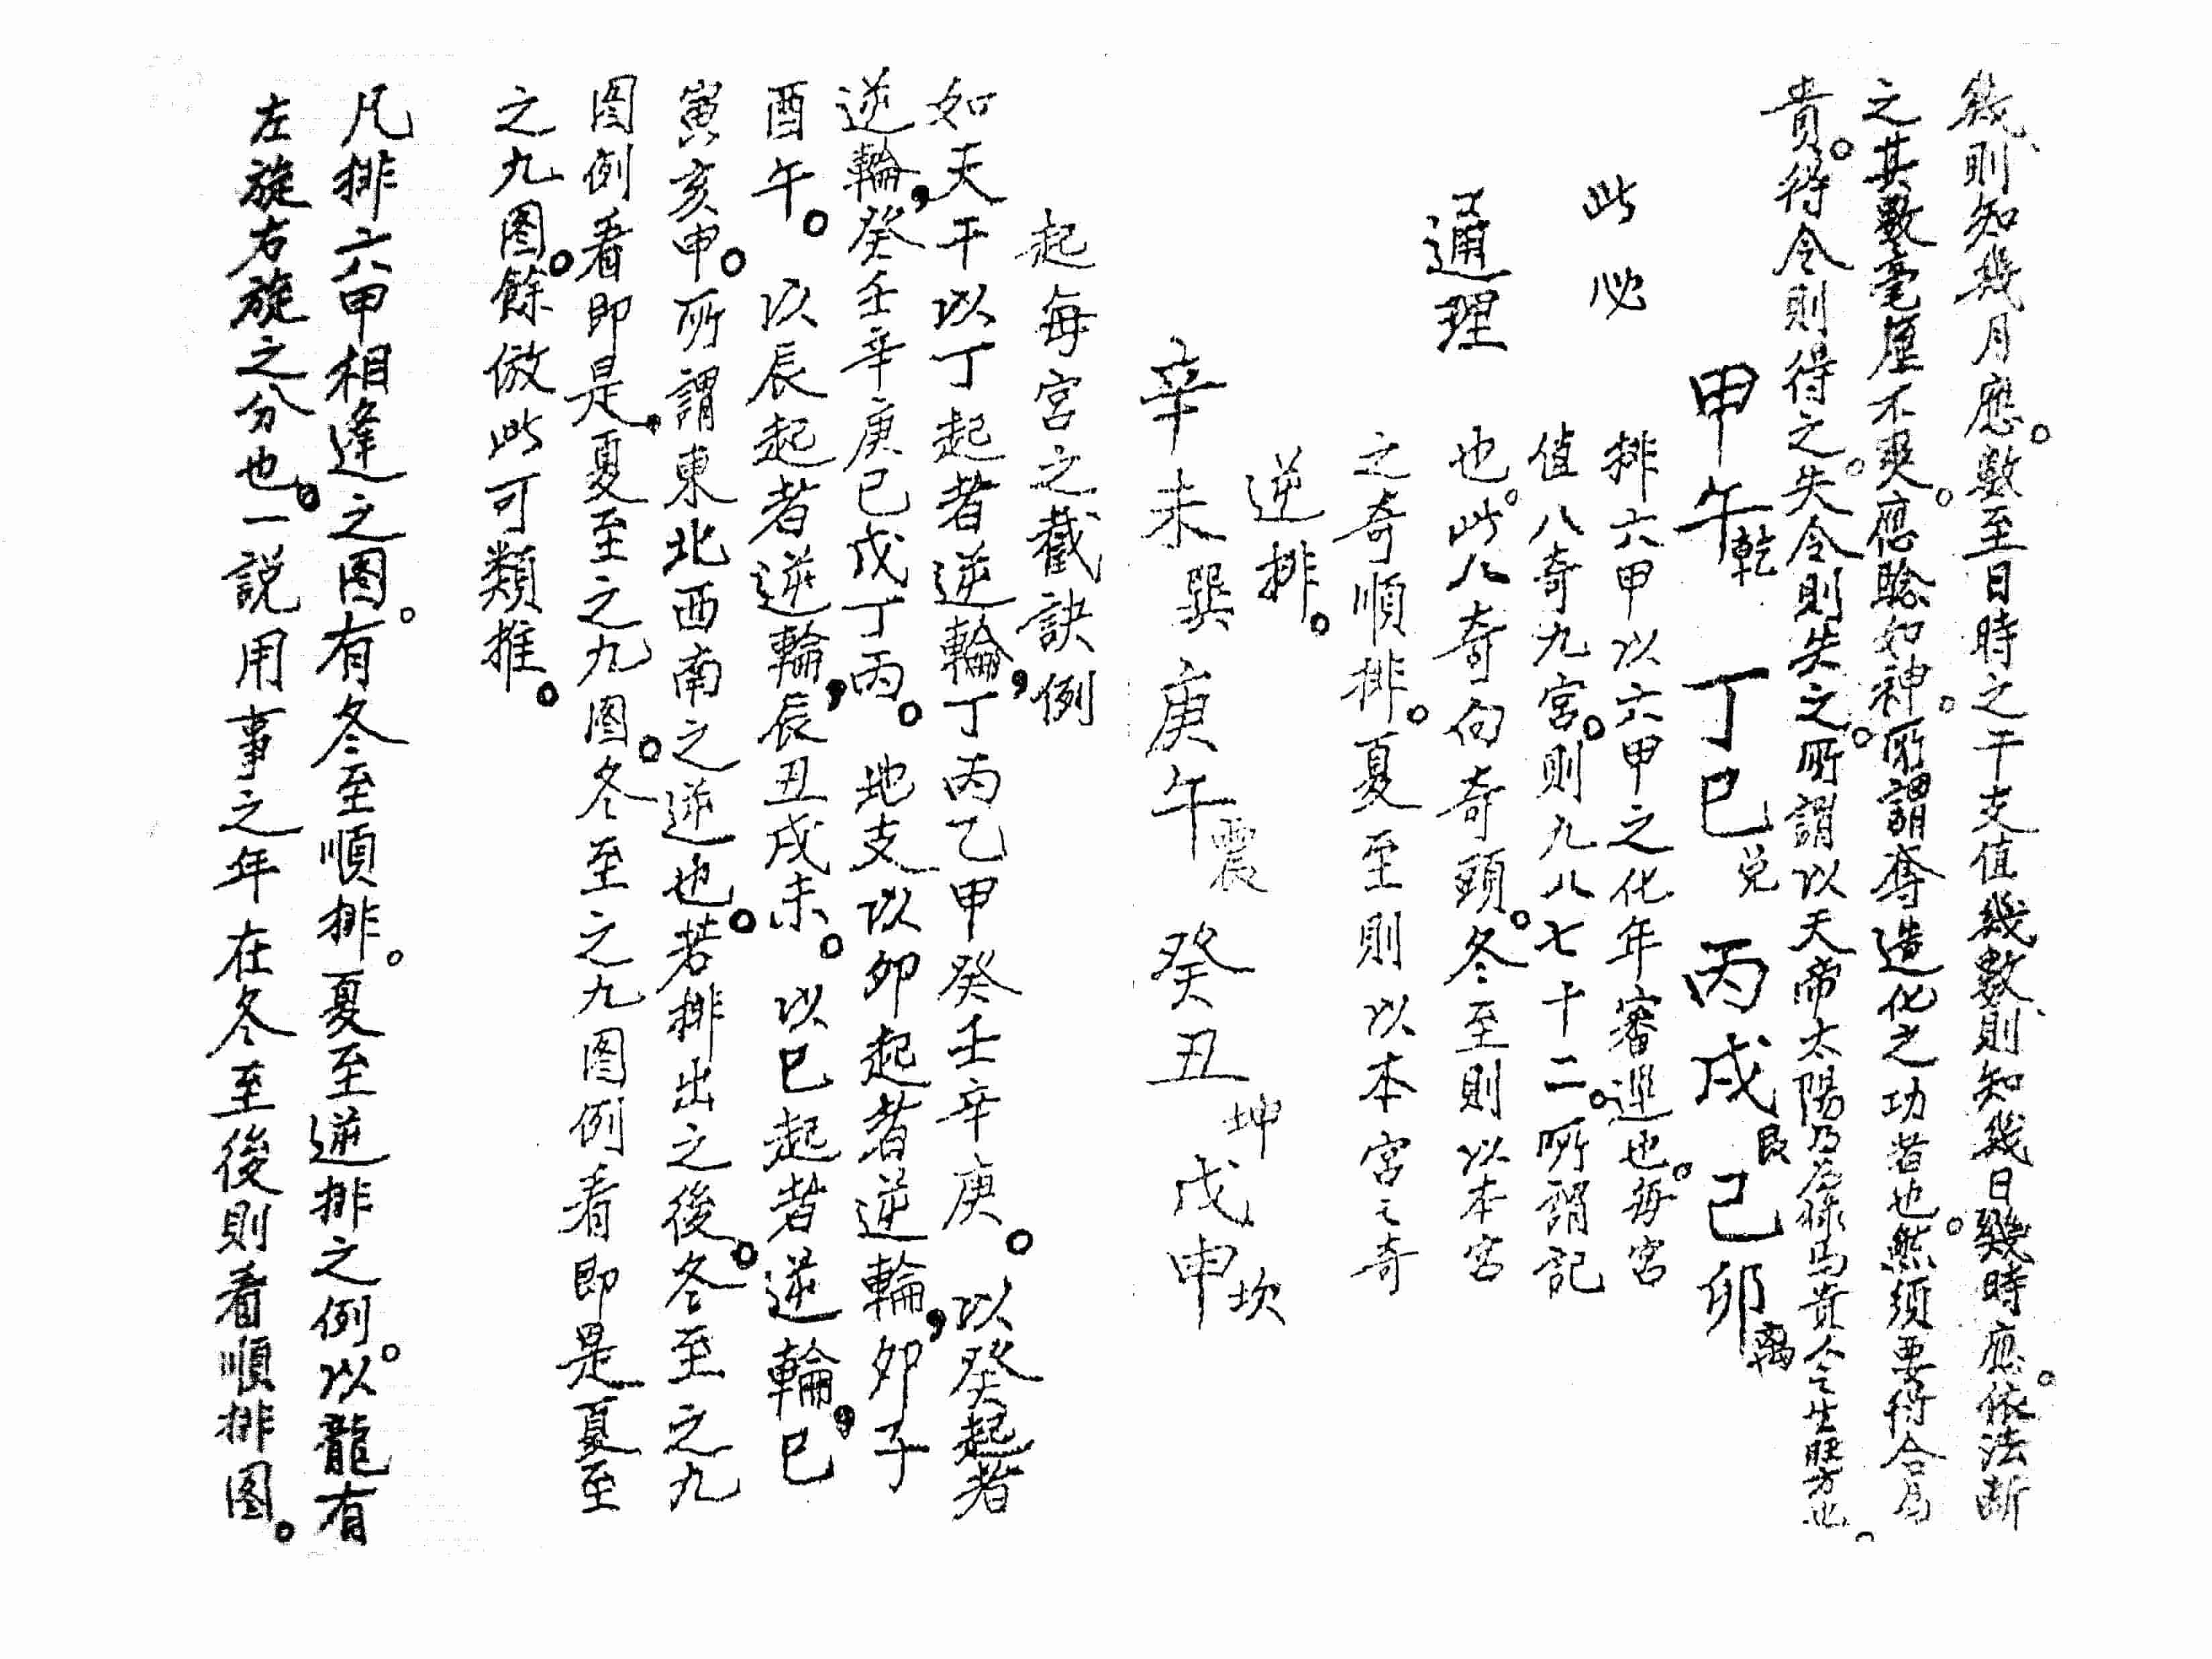 幾、則知幾月應。數至日時之干支值幾數、則知幾日幾時應。依法斷
之其數毫厘不爽。應驗如神。所謂奪造化之功者也。然須要得令為
貴。得令則得之。失令則失之。所謂以天帝太陽乃為祿馬貴人之生旺方也。
甲午乾 丁巳兌 丙戌艮 己卯离
此必
排六甲以六甲之化年審運也。每宮
值八奇九宮。則九八七十二。所謂記
通理
也。此八奇向奇頭。冬至則以本宮
之奇順排。夏至則以本宮之奇
逆排。
辛未巽 庚午震 癸丑坤 戊申坎
起每宮之截訣例
如天干以丁起者逆輪，丁丙乙甲癸壬辛庚。以癸起者
逆輪，癸壬辛庚己戊丁丙。地支以卯起者逆輪，卯子
酉午。以辰起者逆輪，辰丑戌未。以巳起者逆輪，巳
寅亥申。所謂東北西南之逆也。若排出之後。冬至之九
图例看即是，夏至之九图。冬至之九图例看即是夏至
之九图。餘倣此可類推。
凡排六甲相逢之图。有冬至順排。夏至逆排之例。以龍有
左旋右旋之分也。一説用事之年在冬至後則看順排图。